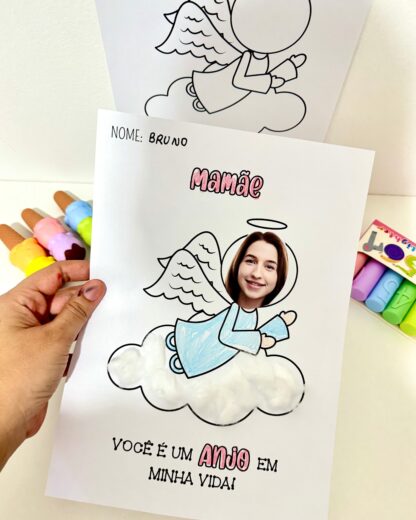 NOME: BRUNO
Mamãe
VOCÊ É UM ANJO EM
MINHA VIDA!